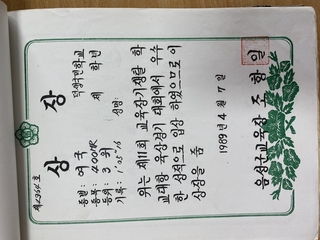 제2364호
상 장
종별: 여국
종목: 400MR
등위: 3위
기록: 1'05"16
덕생국민학교
제 학년
성명
위는 제11회 교육장기쟁탈 학
교대항 육상경기 대회에서 우수
한 성적으로 입상 하였으므로 이
상장을 줌
1989년 4월 7일
음성군교육장 조 항 일